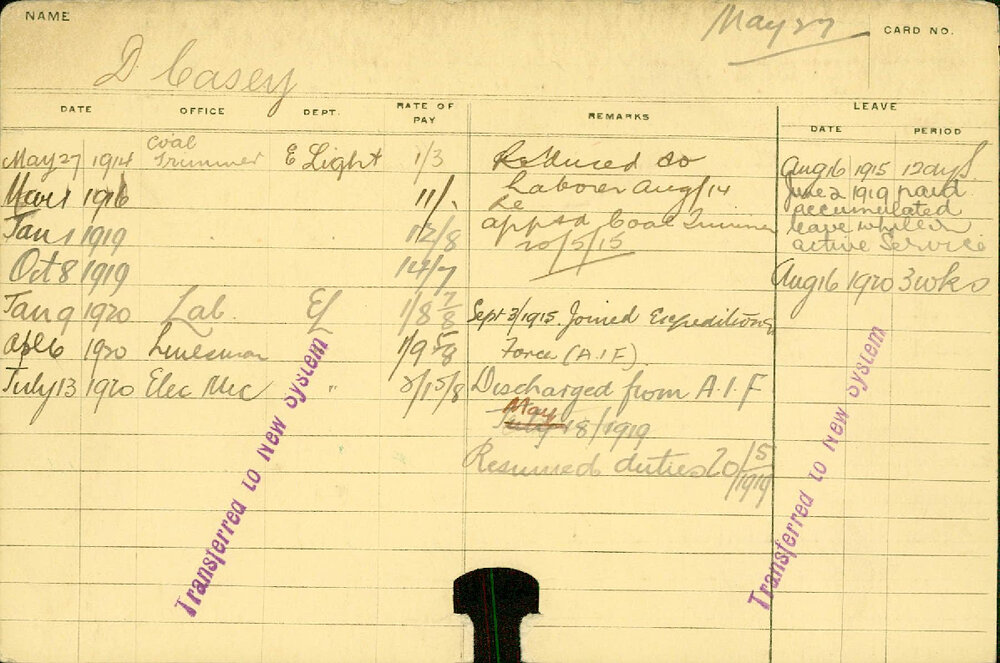 NAME
May 27
CARD NO.
D Casey
DATE OFFICE DEPT. RATE OF PAY REMARKS LEAVE
DATE PERIOD
May 27 1914 Coal Trimmer E Light 1/3 Reduced to Aug 16 1915 12 days
Mar 1 1916 11/- Laborer Aug/14 June 2 1919 paid
Re accumulated
Jan 1 1919 12/8 apptd Coal Trimmer leave while on
20/5/15 active Service
Oct 8 1919 Aug 16 1920 3 wks
Jan 9 1920 Lab. EL 1/8 7/8 Sept 3/1915 Joined Expeditiony
Apl 6 1920 Linesman 1/9 5/8 Force (A.I.F)
July 13 1920 Elec Mec " Discharged from A.I.F
May
July 18/1919
Resumed duties 20/5/1919
Transferred to New System
Transferred to New System